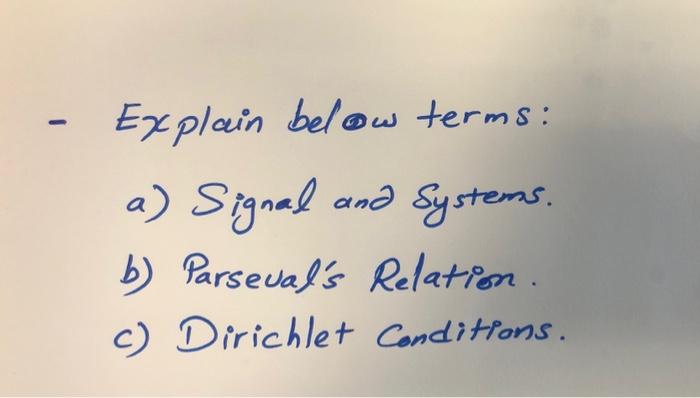 - Explain below terms:
a) Signal and Systems.
b) Parseval's Relation.
c) Dirichlet Conditions.